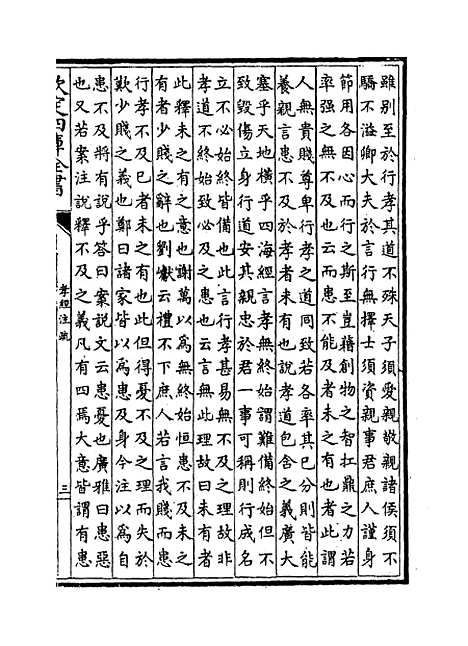 雖别至於行孝其道不殊天子須愛親敬親諸侯須不
驕不溢卿大夫於言行無擇士須資親事君庶人謹身
節用各因心而行之斯至豈藉創物之智扛鼎之力若
率强之無不及也云而患不能及者未之有也者此謂
人無貴賤尊卑行孝之道同致若各率其已分則皆能
養親言患不及於孝者未有也説孝道包含之義廣大
塞乎天地横乎四海經言孝無終始謂難備終始但不
致毁傷立身行道安其親忠於君一事可稱則行成名
立不必始終皆備也此言行孝甚易無不及之理故非
孝道不終始致必及之患也云言無此理故曰未有者
此釋未之有之意也謝萬以為無終始恒患不及未之
有者少賤之辭也劉瓛云禮不下庶人若言我賤而患
行孝不及巳者未之有也此但得憂不及之理而失於
歎少賤之義也鄭曰諸家皆以為患及身今注以為自
患不及將有説乎答曰案説文云患憂也廣雅曰患惡
也又若案注説釋不及之義凡有四焉大意皆謂有患
欽定四庫全書
孝經注疏
三